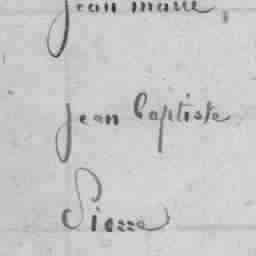 Jean marie,
Jean Baptiste
Pierre